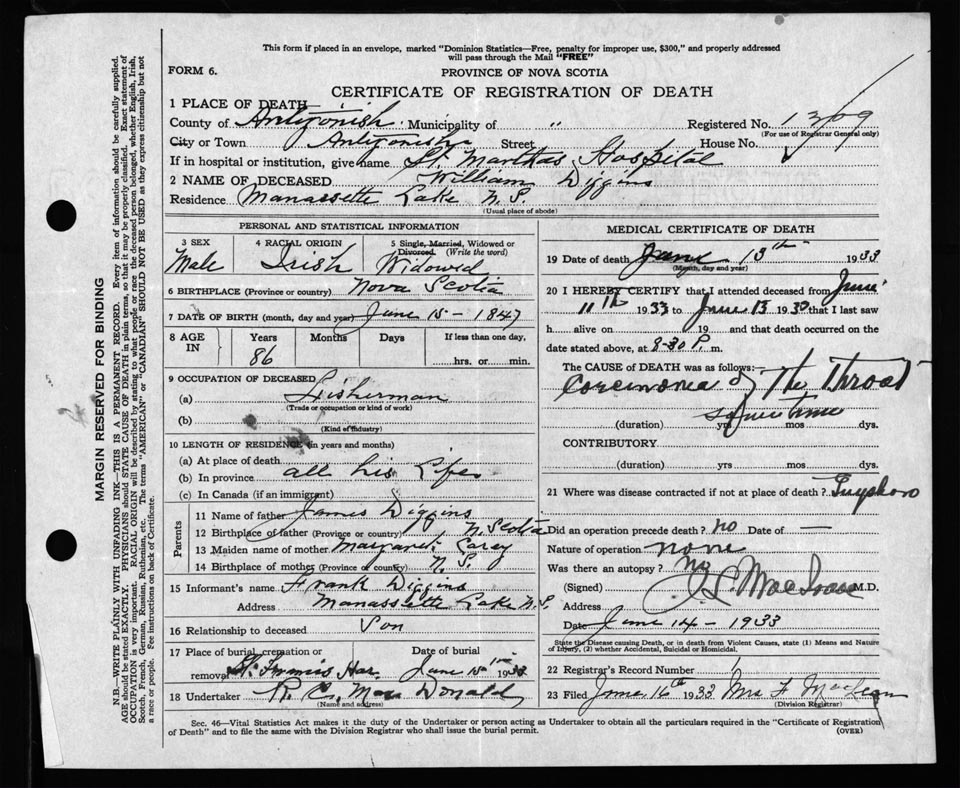 This form if placed in an envelope, marked "Dominion Statistics—Free, penalty for improper use, $300," and properly addressed
will pass through the Mail "FREE"
FORM 6.
PROVINCE OF NOVA SCOTIA
CERTIFICATE OF REGISTRATION OF DEATH
1 PLACE OF DEATH
County of Antigonish Municipality of " Registered No. 1309
(For use of Registrar General only)
City or Town Antigonish Street House No.
If in hospital or institution, give name St. Marthas Hospital
2 NAME OF DECEASED William Diggins
Residence Manassette Lake N.S.
(Usual place of abode)
PERSONAL AND STATISTICAL INFORMATION
3 SEX 4 RACIAL ORIGIN 5 Single, Married, Widowed or
Divorced. (Write the word)
Male Irish Widowed
6 BIRTHPLACE (Province or country) Nova Scotia
7 DATE OF BIRTH (month, day and year) June 15 - 1847
8 AGE IN Years Months Days If less than one day,
86 hrs. or min.
9 OCCUPATION OF DECEASED
(a) Fisherman
(Trade or occupation or kind of work)
(b)
(Kind of industry)
10 LENGTH OF RESIDENCE (in years and months)
(a) At place of death
(b) In province all his Life
(c) In Canada (if an immigrant)
Parents
11 Name of father James Diggins
12 Birthplace of father (Province or country) N. Scotia
13 Maiden name of mother Margaret Carey
14 Birthplace of mother (Province or country) N.S.
15 Informant's name Frank Diggins
Address Manassette Lake N.S.
16 Relationship to deceased Son
17 Place of burial, cremation or Date of burial
removal St. Francis Har. June 15th 1933
18 Undertaker R. C. Mac Donald
(Name and address)
MEDICAL CERTIFICATE OF DEATH
19 Date of death June 13th 1933
(Month, day and year)
20 I HEREBY CERTIFY that I attended deceased from June
11th 1933 to June 13 1933 that I last saw
h alive on 19 and that death occurred on the
date stated above, at 8-30 P. m.
The CAUSE OF DEATH was as follows:
Corcinoma of The Throat
(duration) yrs mos dys.
CONTRIBUTORY
(duration) yrs mos dys.
21 Where was disease contracted if not at place of death?
Did an operation precede death? no Date of —
Nature of operation none
Was there an autopsy? no
(Signed) M.D.
Address
Date June 14 - 1933
State the Disease causing Death, or in death from Violent Causes, state (1) Means and Nature
of Injury, (2) whether Accidental, Suicidal or Homicidal.
22 Registrar's Record Number 1
23 Filed June 16th 1933 Mrs F MacLean
(Division Registrar)
Sec. 46—Vital Statistics Act makes it the duty of the Undertaker or person acting as Undertaker to obtain all the particulars required in the "Certificate of Registration
of Death" and to file the same with the Division Registrar who shall issue the burial permit. (OVER)
MARGIN RESERVED FOR BINDING
N.B.—WRITE PLAINLY WITH UNFADING INK—THIS IS A PERMANENT RECORD. Every item of information should be carefully supplied.
AGE should be stated EXACTLY. PHYSICIANS should STATE CAUSE OF DEATH in plain terms, so that it may be properly classified. Exact statement of
OCCUPATION is very important. RACIAL ORIGIN will be described by stating to what people or race the deceased person belonged, whether English, Irish,
Scotch, French, German, Russian, Ruthenian, etc. The terms "AMERICAN" or "CANADIAN" SHOULD NOT BE USED as they express citizenship but not
a race or people. See instructions on back of Certificate.